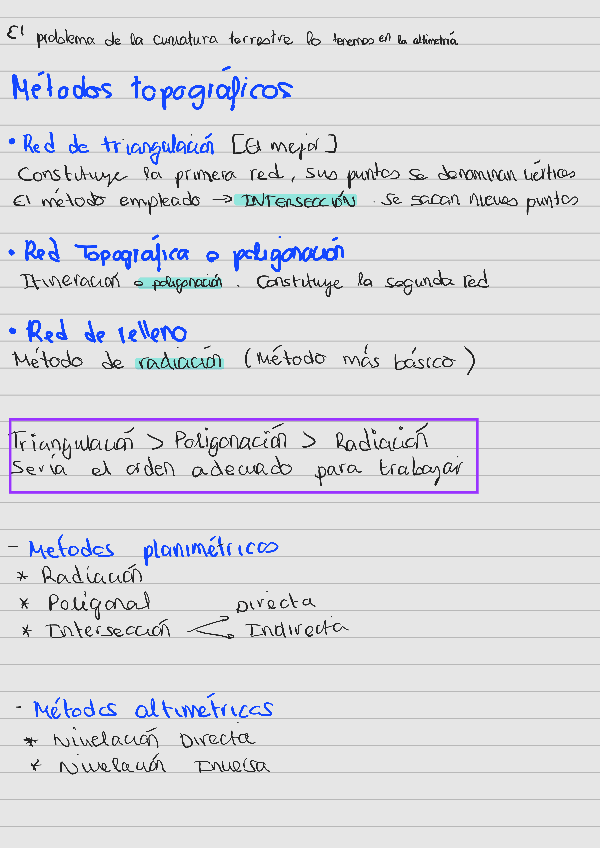 El problema de la curvatura terrestre lo tenemos en la altimetría
Métodos topográficos
• Red de triangulación [El mejor]
Constituye la primera red, sus puntos se denominan vértices
El método empleado → INTERSECCIÓN. Se sacan nuevos puntos
• Red Topográfica o poligonación
Itineración o poligonación. Constituye la segunda red
• Red de relleno
Método de radiación (Método más básico)
Triangulación > Poligonación > Radiación
Sería el orden adecuado para trabajar
- Métodos planimétricos
* Radiación
* Poligonal
Directa
* Intersección
Indirecta
- Métodos altimétricos
* Nivelación Directa
* Nivelación Inversa